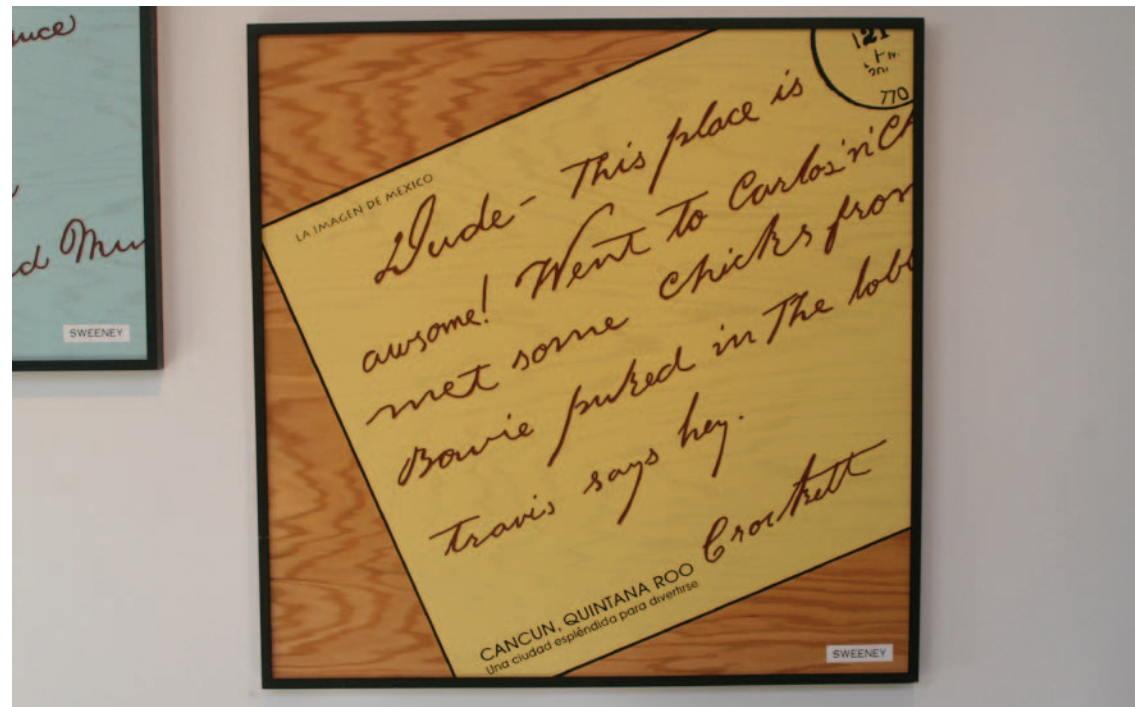 d Mu
SWEENEY
LA IMAGEN DE MEXICO
121
770
Dude- This place is
awsome! Went to Carlos'n'Ch
met some chicks from
Bowie puked in The lobb
travis says hey.
Crockett
CANCUN, QUINTANA ROO
Una ciudad espléndida para divertirse
SWEENEY